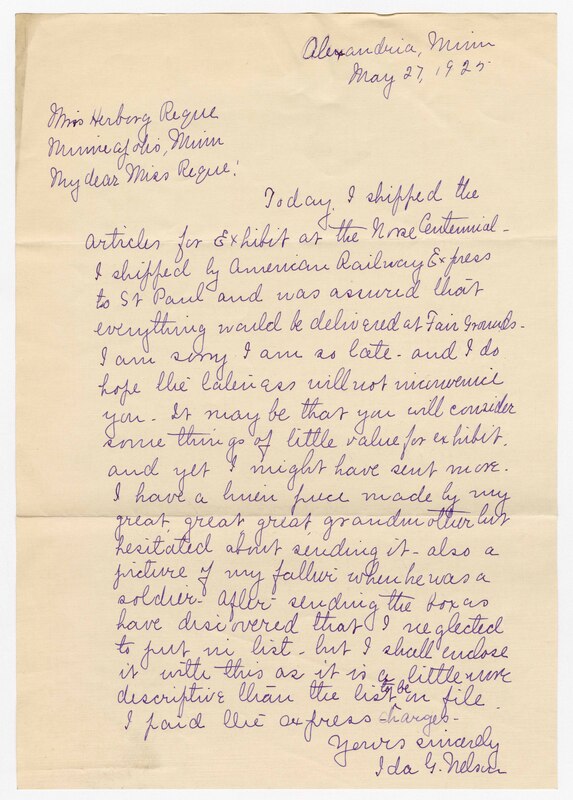 Alexandria, Minn
May 27, 1925
Miss Herborg Reque
Minneapolis, Minn
My dear Miss Reque!
Today I shipped the
articles for Exhibit at the Norse Centennial -
I shipped by American Railway Express
to St Paul and was assured that
everything would be delivered at Fair Grounds -
I am sorry I am so late - and I do
hope the lateness will not inconvenience
you - It may be that you will consider
some things of little value for exhibit,
and yet I might have sent more.
I have a linen piece made by my
great, great great grandmother but
hesitated about sending it - also a
picture of my father when he was a
soldier - After sending the box as
have discovered that I neglected
to put in list - but I shall enclose
it with this as it is a little more
descriptive than the list to be on file.
I paid the express charges -
Yours sincerely
Ida G. Nelson